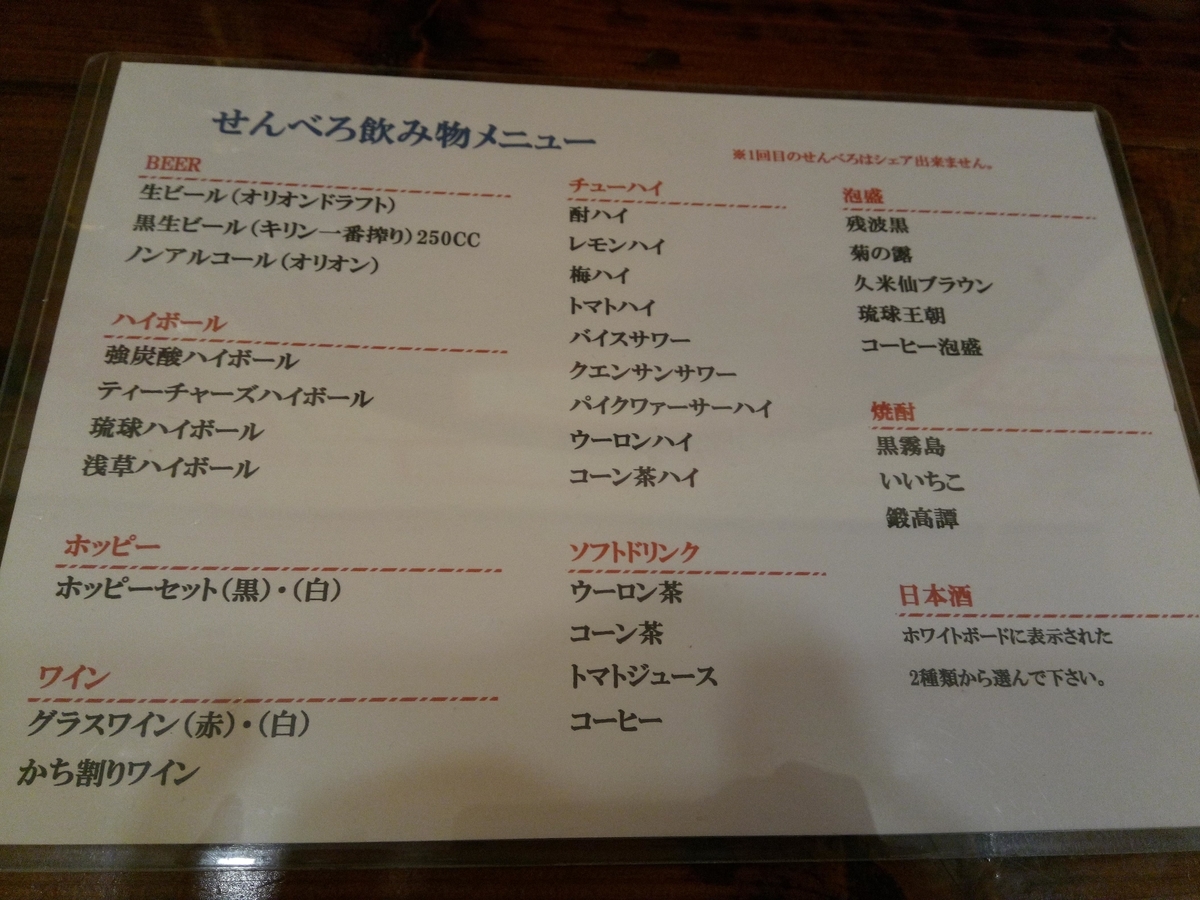 せんべろ飲み物メニュー
※1回目のせんべろはシェア出来ません。
BEER
生ビール(オリオンドラフト)
黒生ビール(キリン一番搾り)250CC
ノンアルコール(オリオン)
ハイボール
強炭酸ハイボール
ティーチャーズハイボール
琉球ハイボール
浅草ハイボール
ホッピー
ホッピーセット(黒)・(白)
ワイン
グラスワイン(赤)・(白)
かち割りワイン
チューハイ
酎ハイ
レモンハイ
梅ハイ
トマトハイ
バイスサワー
クエンサンサワー
パイクワァーサーハイ
ウーロンハイ
コーン茶ハイ
ソフトドリンク
ウーロン茶
コーン茶
トマトジュース
コーヒー
泡盛
残波黒
菊の露
久米仙ブラウン
琉球王朝
コーヒー泡盛
焼酎
黒霧島
いいちこ
鍛高譚
日本酒
ホワイトボードに表示された
2種類から選んで下さい。